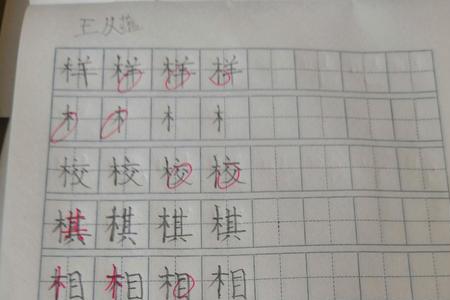 样样样样
木木木木
校校校校
棋棋棋棋
相相相相